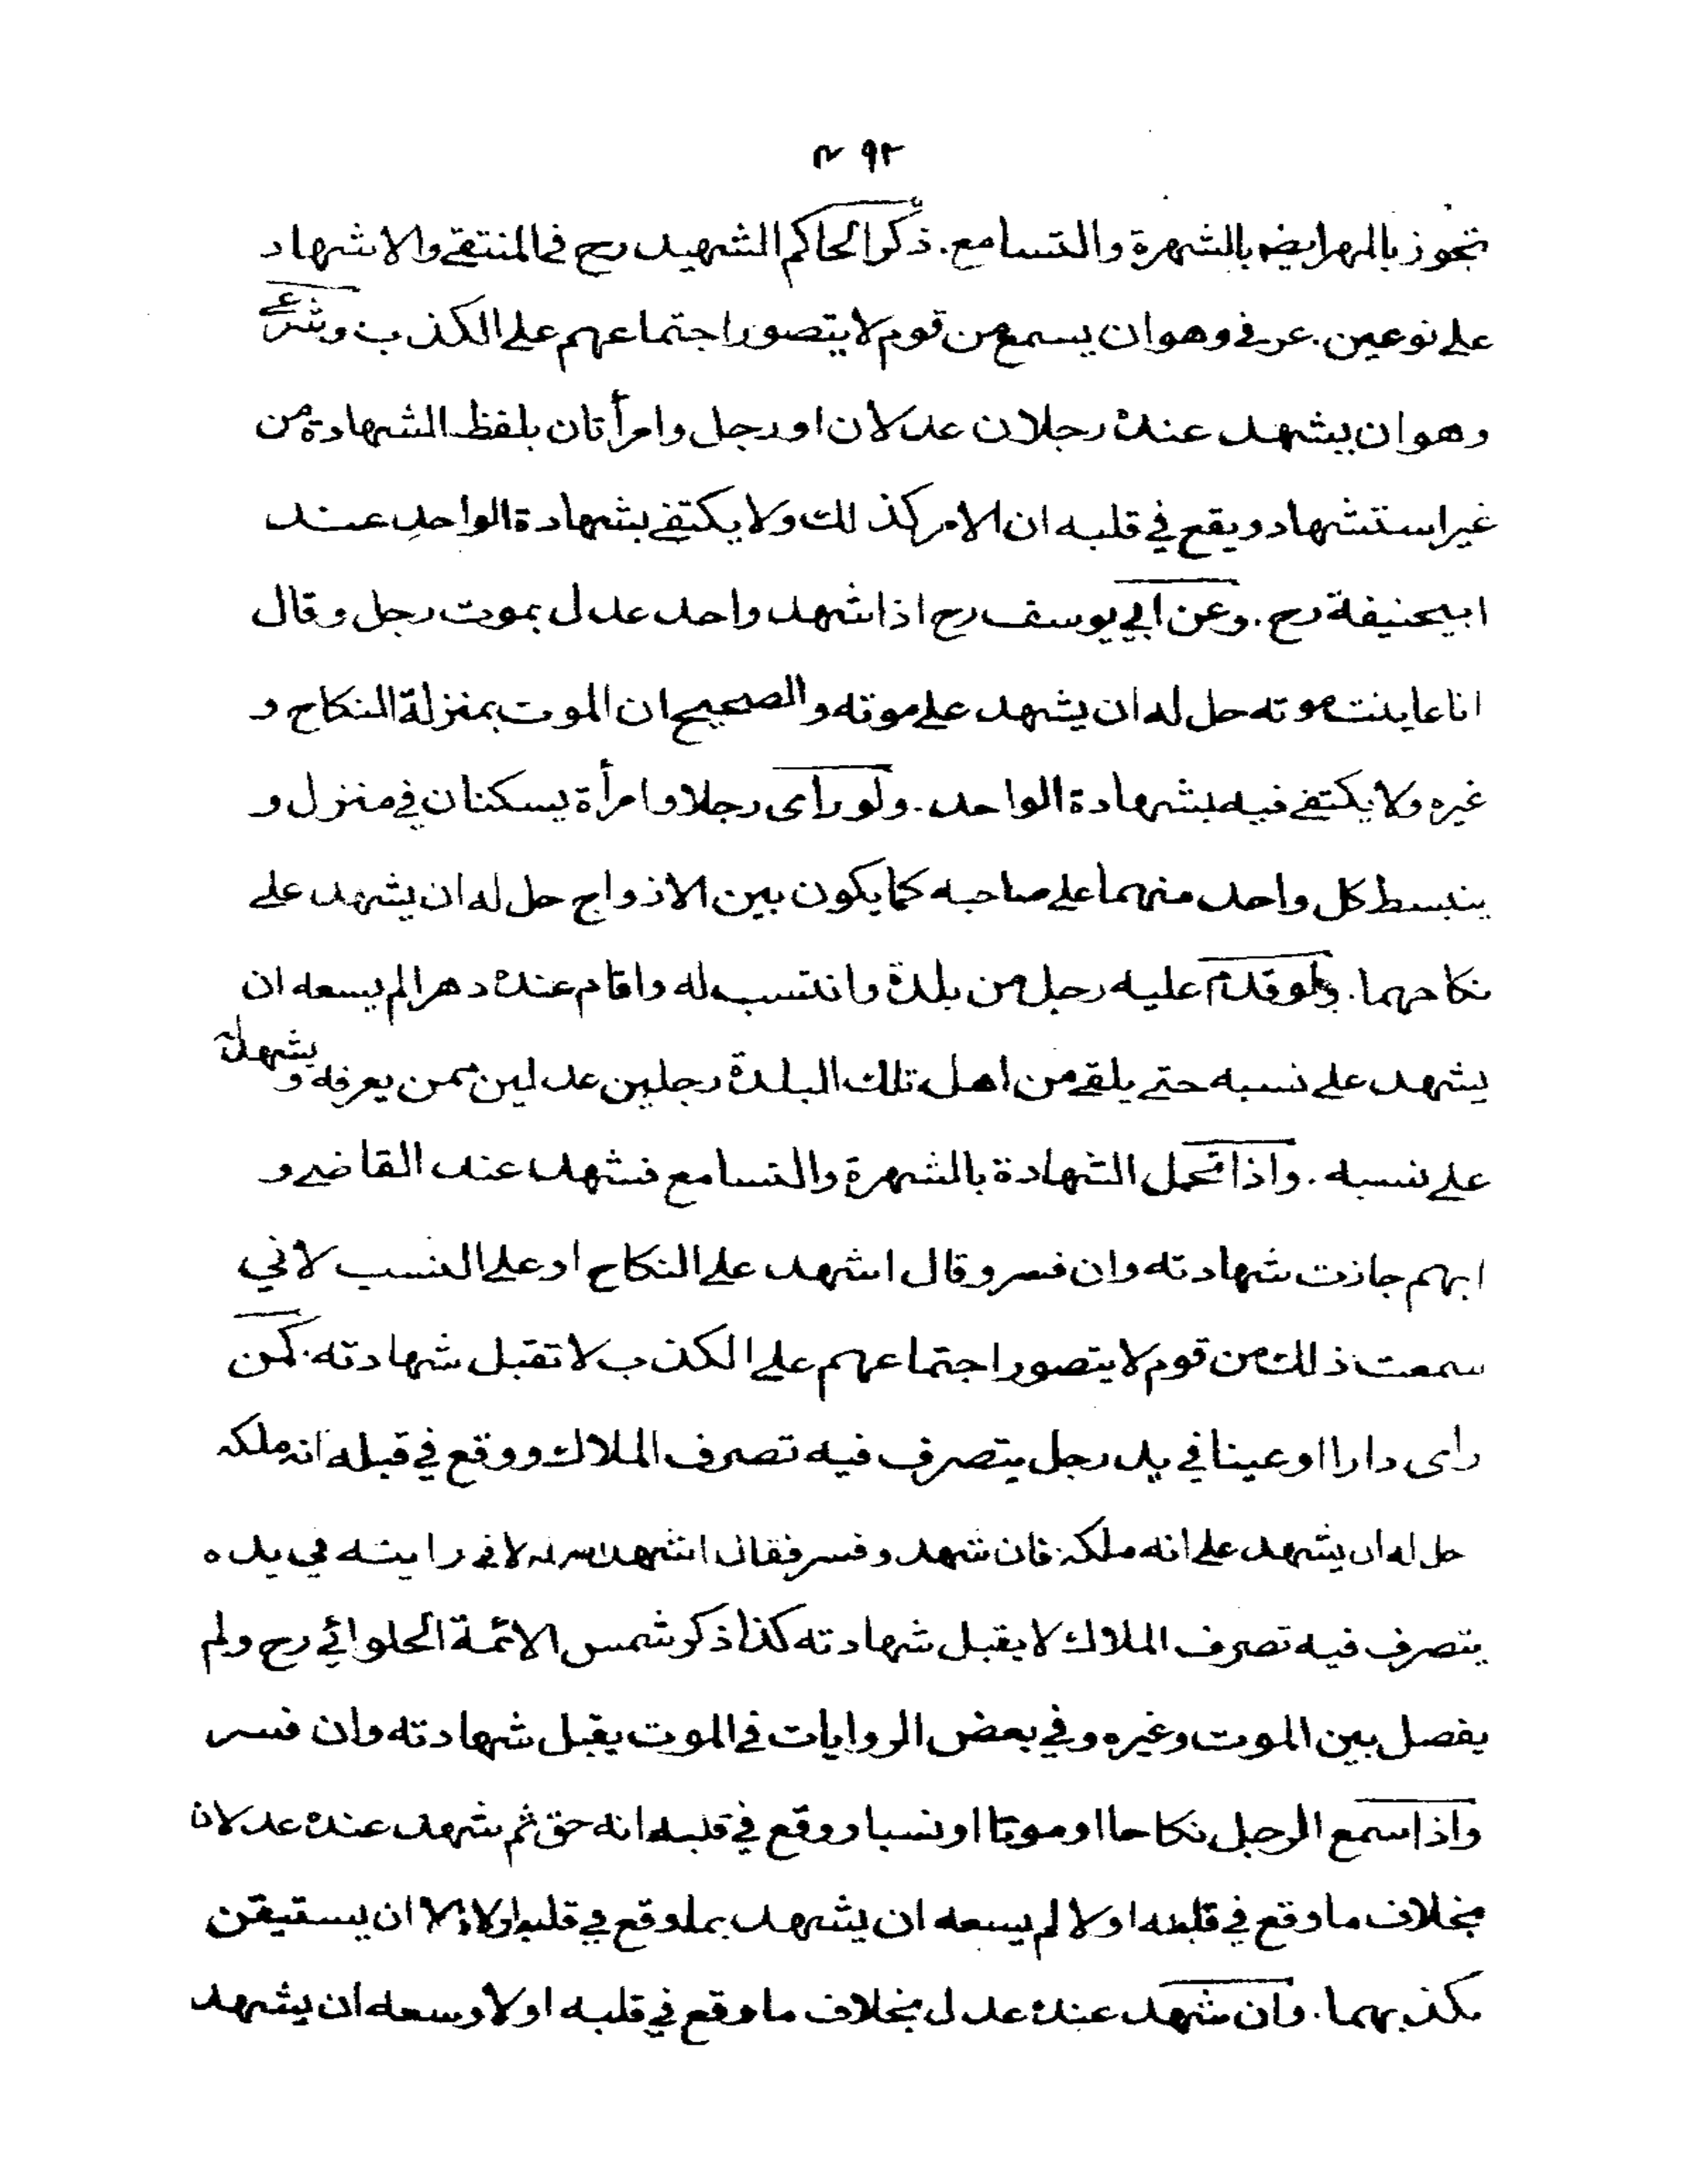 ٩٢
تجوز بالمهر ايضه بالشهرة والتسامع. ذكر الحاكم الشهيد رح في المنتقے والاشهاد
علے نوعين. عرفے وهو ان يسمع من قوم لا يتصور اجتماعهم علے الكذب وشرعے
وهو ان يشهد عنده رجلان عدلان او رجل وامرأتان بلفظ الشهادة من
غير استشهاد ويقع في قلبه ان الامر كذلك ولا يكتفے بشهادة الواحد عند
ابيحنيفة رح. وعن ابي يوسف رح اذا شهد واحد عدل بموت رجل وقال
انا عاينت موته حل له ان يشهد علے موته والصحيح ان الموت بمنزلة النكاح و
غيره ولا يكتفے فيه بشهادة الواحد. ولو راى رجلا وامرأة يسكنان في منزل و
ينبسط كل واحد منهما علے صاحبه كما يكون بين الازواج حل له ان يشهد علے
نكاحهما. ولو قدم عليه رجل من بلدة وانتسب له واقام عنده دهرا لم يسعه ان
يشهد علے نسبه حتے يلقے من اهل تلك البلدة رجلين عدلين ممن يعرفه ويشهد له
علے نسبه. واذا تحمل الشهادة بالشهرة والتسامع فشهد عند القاضے و
ابهم جازت شهادته وان فسر وقال اشهد علے النكاح او علے النسب لاني
سمعت ذلك من قوم لا يتصور اجتماعهم علے الكذب لا تقبل شهادته. كمن
راى دارا او عينا في يد رجل يتصرف فيه تصرف الملاك ووقع في قبله انه ملكه
حل له ان يشهد علے انه ملكه. فان شهد وفسر فقال اشهد لانے رايته في يده
يتصرف فيه تصرف الملاك لا يقبل شهادته كذا ذكر شمس الائمة الحلوائي رح ولم
يفصل بين الموت وغيره وفي بعض الروايات في الموت يقبل شهادته وان فسر
واذا سمع الرجل نكاحا او موتا او نسبا ووقع في قلبه انه حق ثم شهد عنده عدلان
بخلاف ما وقع في قلبه اولا لم يسعه ان يشهد بما وقع في قلبه اولا الا ان يستيقن
بكذبهما. وان شهد عنده عدل بخلاف ما وقع في قلبه اولا وسعه ان يشهد